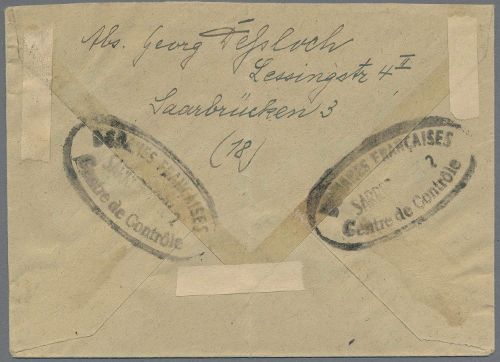 Abs. Georg Teßloch
Lessingstr 4 II
Saarbrücken 3
(18)
DOUANES FRANÇAISES
2
Centre de Contrôle
DOUANES FRANÇAISES
2
Centre de Contrôle